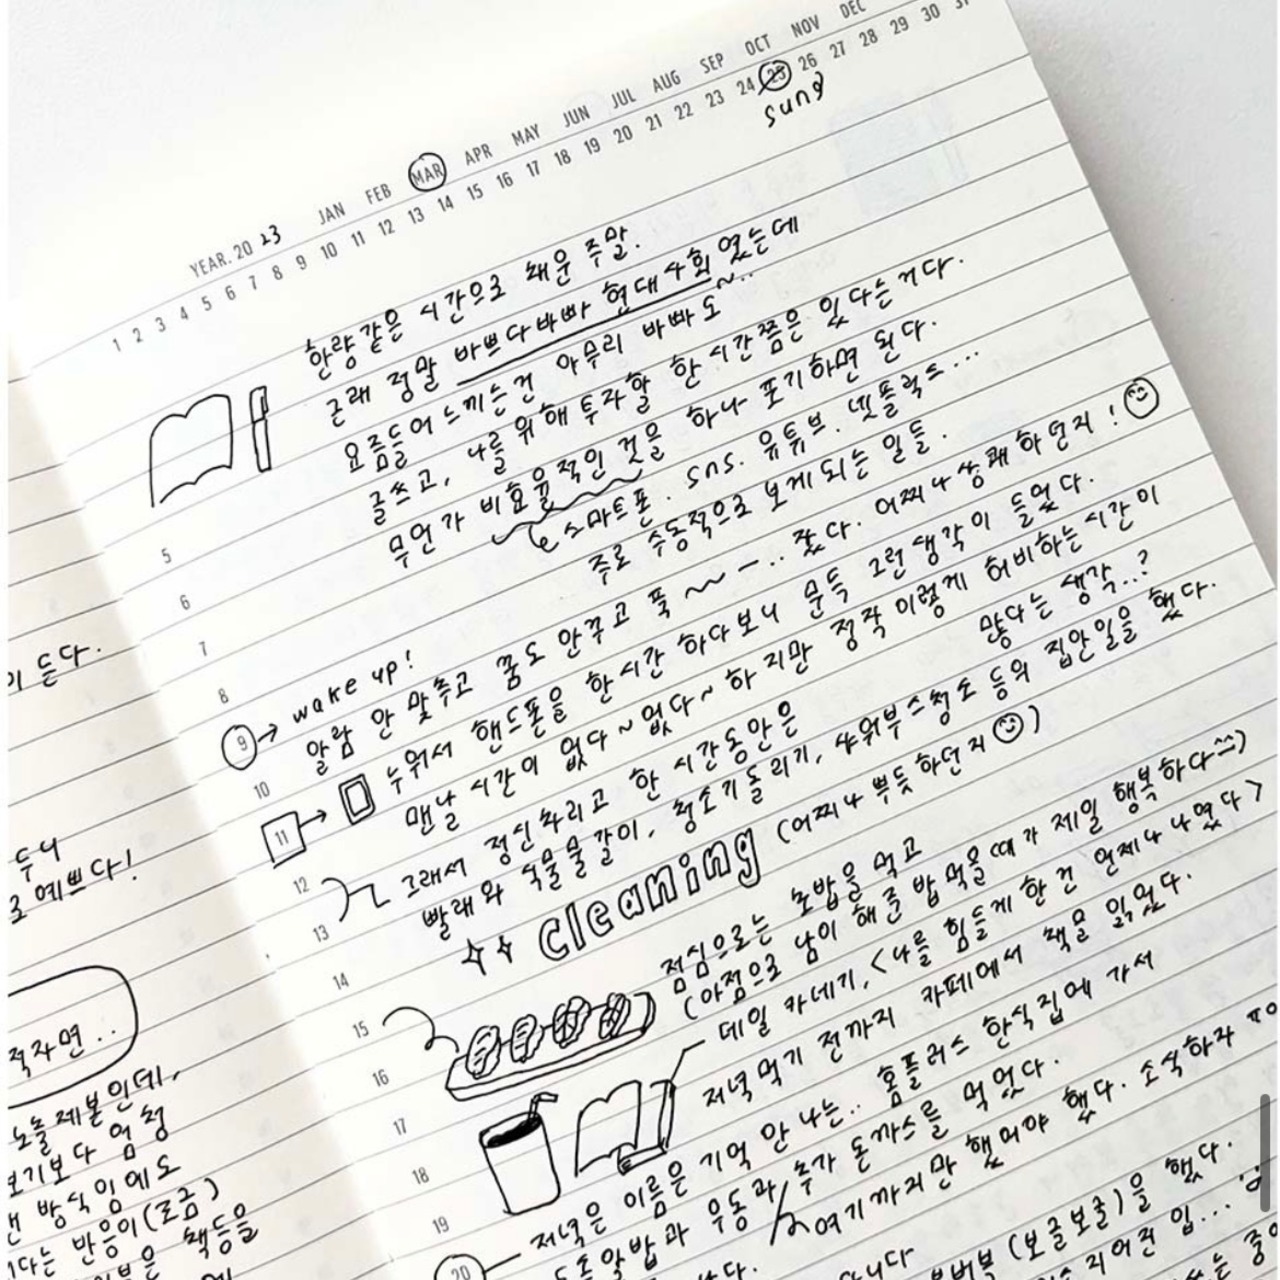 JAN FEB MAR APR MAY JUN JUL AUG SEP OCT NOV DEC
YEAR. 20 23
1 2 3 4 5 6 7 8 9 10 11 12 13 14 15 16 17 18 19 20 21 22 23 24 25 26 27 28 29 30 31
sung
한량같은 시간으로 채운 주말.
근래 정말 바쁘다바빠 현대사회 였는데
요즘들어 느끼는건 아무리 바빠도 ~..
글쓰고, 나를 위해 투자할 한 시간쯤은 있다는거다.
무언가 비효율적인 것을 하나 포기하면 된다.
스마트폰. sns. 유튜브. 넷플릭스...
주로 수동적으로 보게되는 일들.
5
6
7
8
9 → wake up!
알람 안 맞추고 꿈도 안꾸고 푹 ~~ ー.. 잤다. 어찌나 상쾌 하던지!
10
11 → 누워서 핸드폰을 한시간 하다보니 문득 그런생각이 들었다.
맨날 시간이 없다~없다~ 하지만 정작 이렇게 허비하는 시간이
많다는 생각..?
12
그래서 정신차리고 한 시간동안은
빨래와 식물물갈이, 청소기돌리기, 샤워부스청소 등의 집안일을 했다.
13
cleaning (어찌나 뿌듯하던지)
14
점심으로는 초밥을 먹고
(아점으로 남이 해준 밥먹을때가 제일 행복하다^^)
15
데일 카네기, <나를 힘들게 한건 언제나 나였다>
16
저녁먹기 전까지 카페에서 책을 읽었다.
17
18
19
저녁은 이름은 기억 안나는.. 홈플러스 한식집에 가서
20
알밥과 우동과 추가 돈까스를 먹었다.
여기까지만 했어야 했다. 소식하자
(보글보글)을 했다.
이 든다.
두니
로 예쁘다!
적자면..
오늘 제본인데,
보기보다 엄청
방식임에도
다는 반응이(조금)
책들을